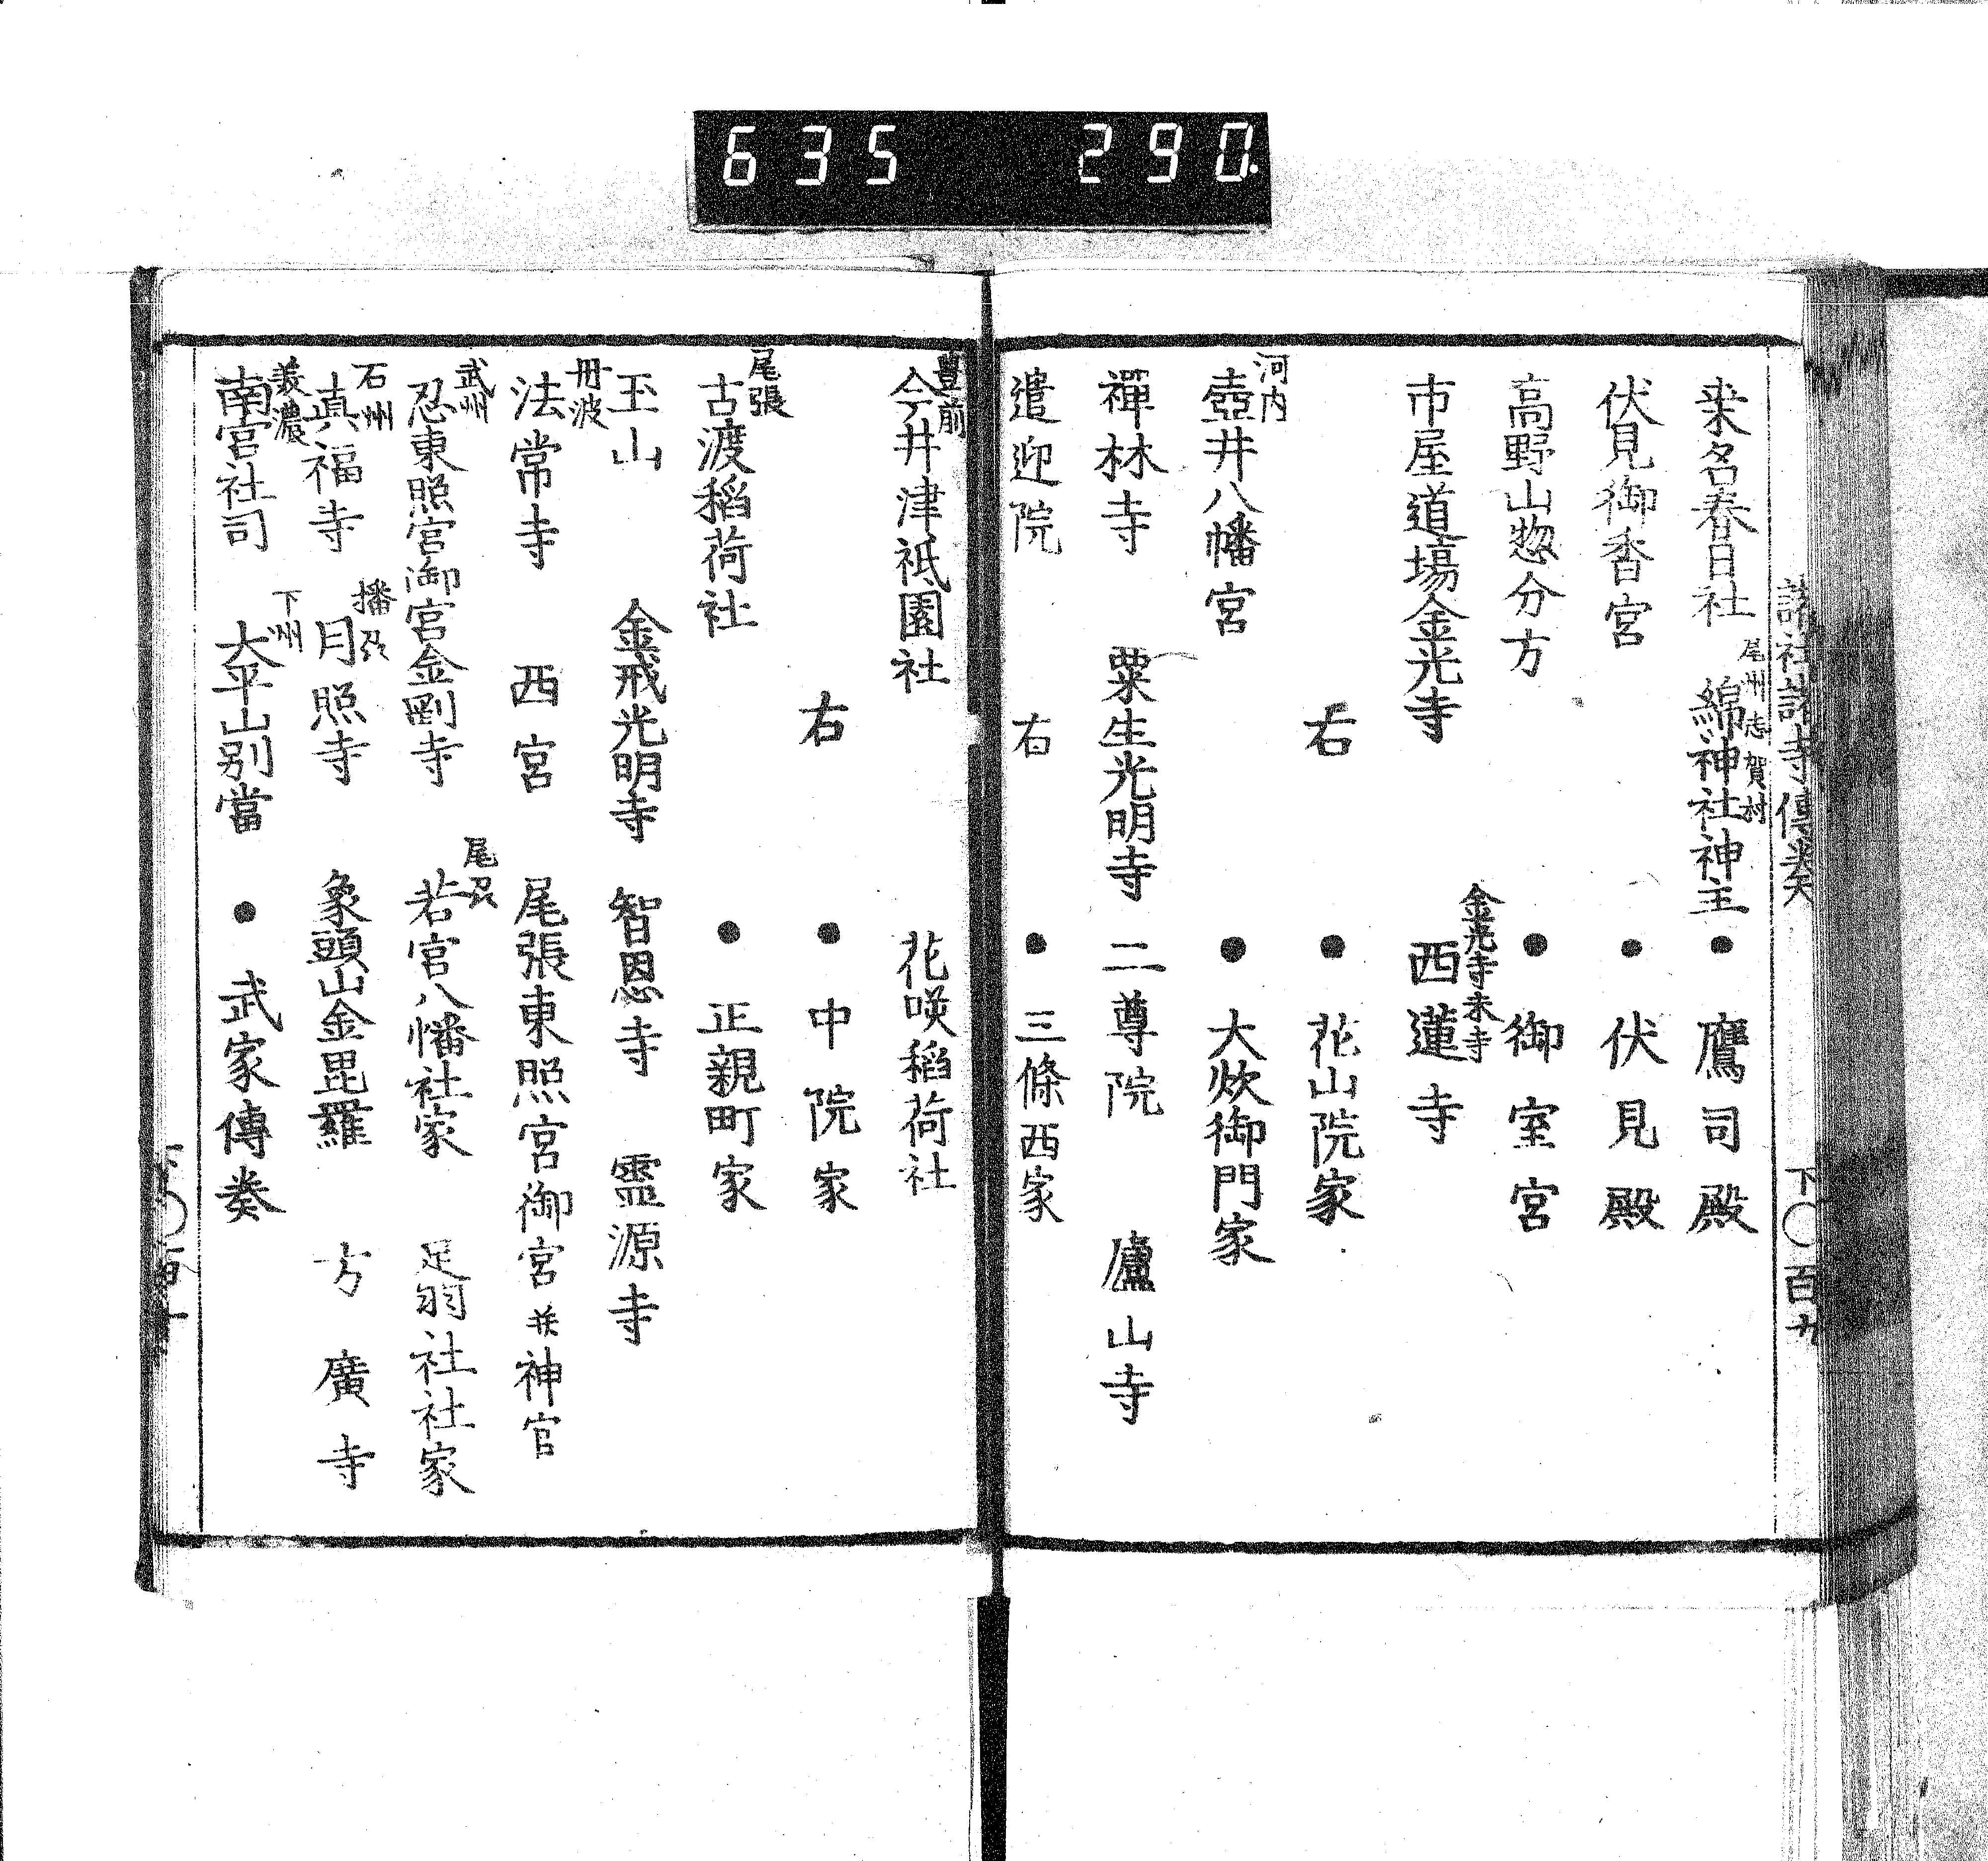 635 290.
諸社諸寺傳奏 下〇百九
桒名春日社 尾州志賀村 綿神社神主 ● 鷹司殿
伏見御香宮 ● 伏見殿
高野山惣分方 ● 御室宮
市屋道場金光寺 金光寺末寺 西蓮寺
右 ● 花山院家
河内 壺井八幡宮 ● 大炊御門家
禪林寺 粟生光明寺 二尊院 廬山寺
遣迎院 右 ● 三條西家
豊前 今井津祇園社 花咲稻荷社
右 ● 中院家
尾張 古渡稻荷社 ● 正親町家
玉山 金戒光明寺 智恩寺 靈源寺
丹波 法常寺 西宮 尾張東照宮御宮并神官
武州 忍東照宮御宮金剛寺 尾刕 若宮八幡社家 足羽社社家
石州 真福寺 播刕 月照寺 象頭山金毘羅 方廣寺
美濃 南宮社司 下州 大平山別當 ● 武家傳奏